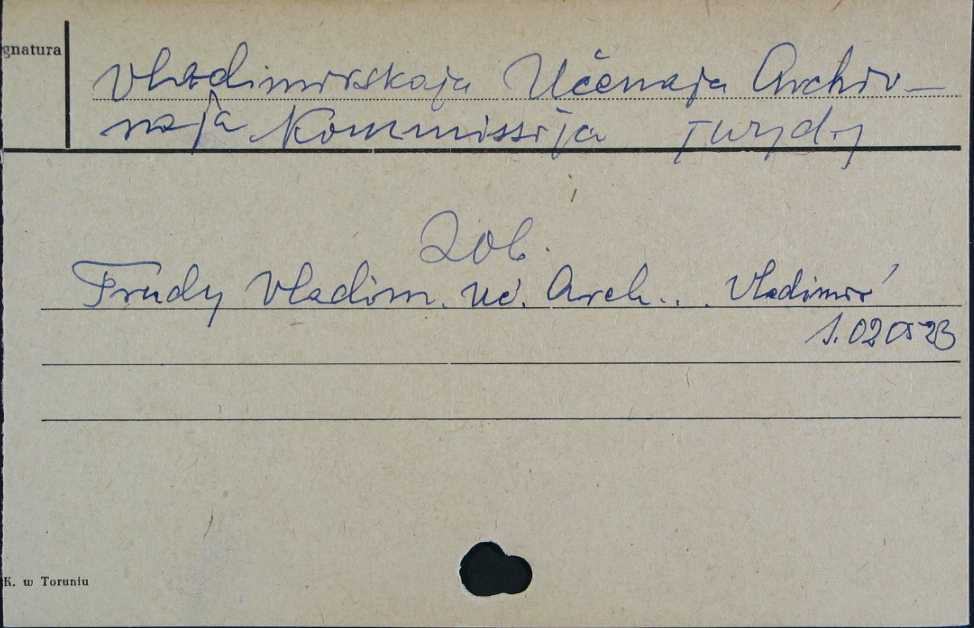 gnatura
Vladimirskaja Učenaja Archiv-
naja Kommissija Trudy
Zob.
Trudy Vladim. Uč. Arch... Vladimir'
K. w Toruniu